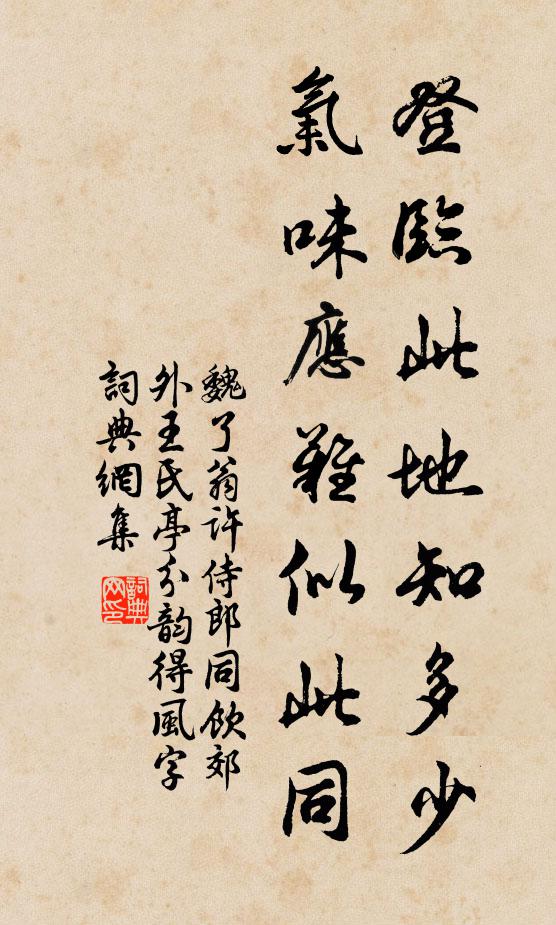 登臨此地知多少
氣味應難似此同
魏了翁許侍郎同飲郊
外王氏亭分韵得風字
詞典網集
詞典網印